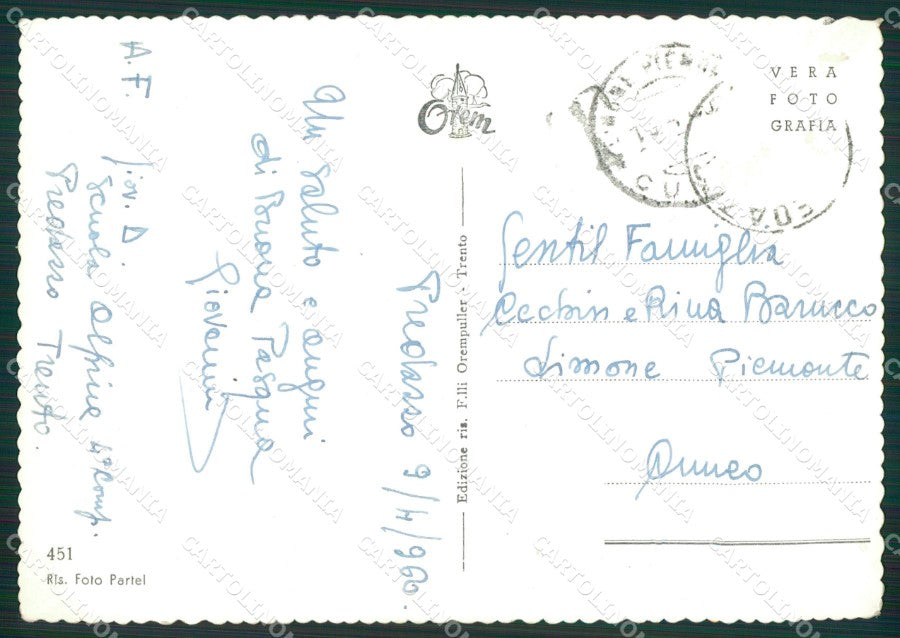 A.F. Giov. D.
Scuola Alpina 4ª Comp.
Predazzo Trento.
Un Saluto e auguri
di Buona Pasqua
Giovanni
Predazzo 9/4/960.
451
Ris. Foto Partel
Orem
Edizione ris. F.lli Orempuller - Trento
VERA
FOTO
GRAFIA
Gentil Famiglia
Cechin e Rina Barucco
Limone Piemonte
Cuneo
CARTOLINOMANIA